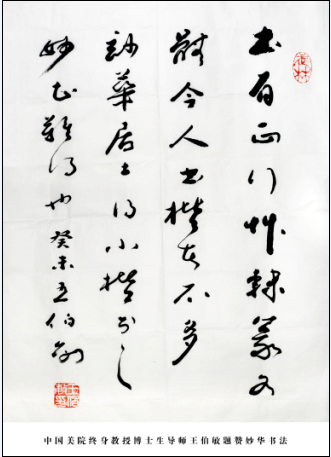 书有正行艸隸篆
今人书楷者不多
妙華居士得小楷之
妙书難得也 癸未王伯敏
中国美院终身教授博士生导师王伯敏题赞妙华书法